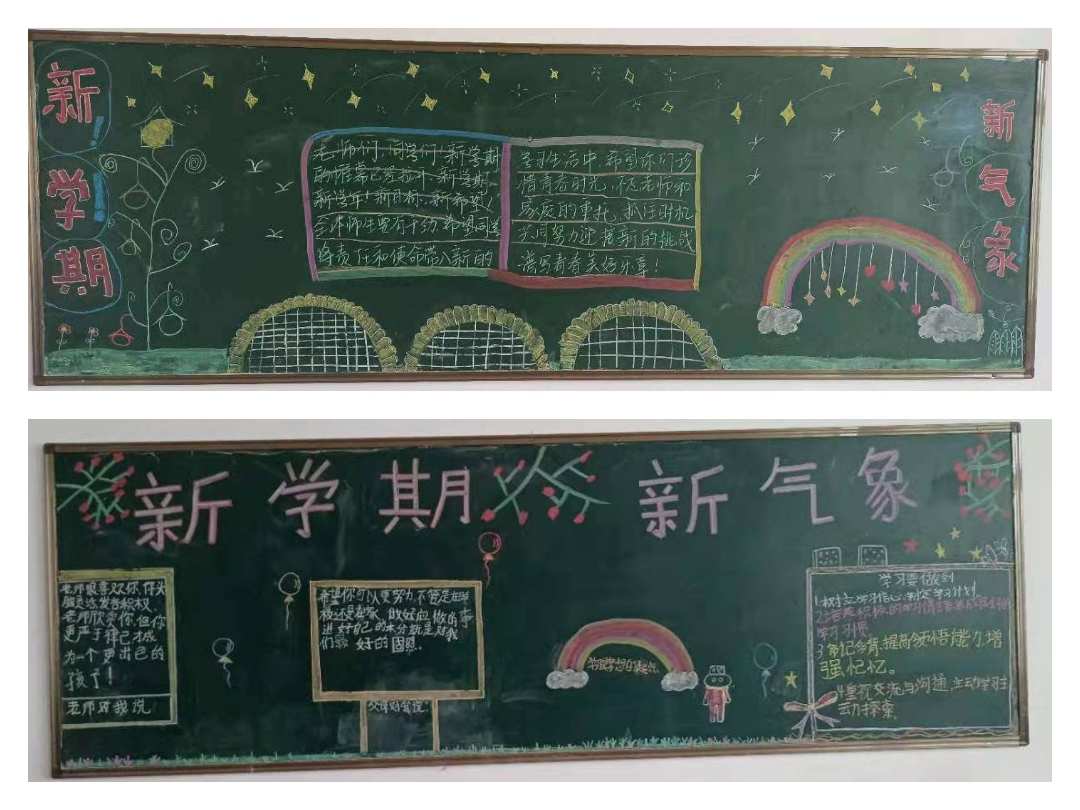 新
学
期
老师们,同学们!新学期
的帷幕已经拉开,新学期、
新学年!新目标、新希望!
全体师生要有干劲!希望同学
将责任和使命带入新的
学习生活中,希望你们珍
惜青春时光,不忘老师和
家庭的重托,抓住时机
共同努力迎接新的挑战
谱写青春美好乐章!
新
气
象
新学期 新气象
老师很喜欢你
发言积极、
老师欣赏你但你
更严于律己才成
为一个更出色的
孩子!
老师对我说
希望你可以更努力,不管是在学
校还是在家,做好应做的事
进好自己的本分就是对我
们最好的回照.
父母对我说:
学习要做到
1.树立学习信心,制定学习计划.
学习习惯.
3.常记多背,提高领悟能力,增
强记忆。
4.重视交流与沟通,主动学习主
动探索.